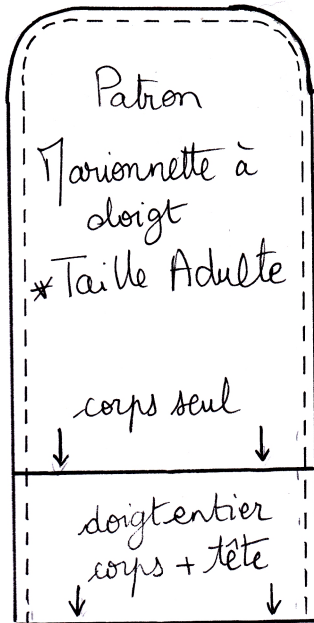 Patron
Marionnette à
doigt
*Taille Adulte
corps seul
doigt entier
corps + tête